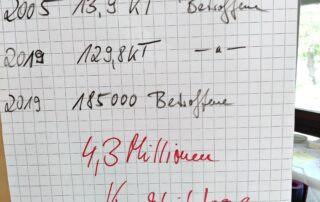 2005 13,9 KT Betroffene
2019 129,8 KT — " —
2019 185000 Betroffene
4,3 Millionen